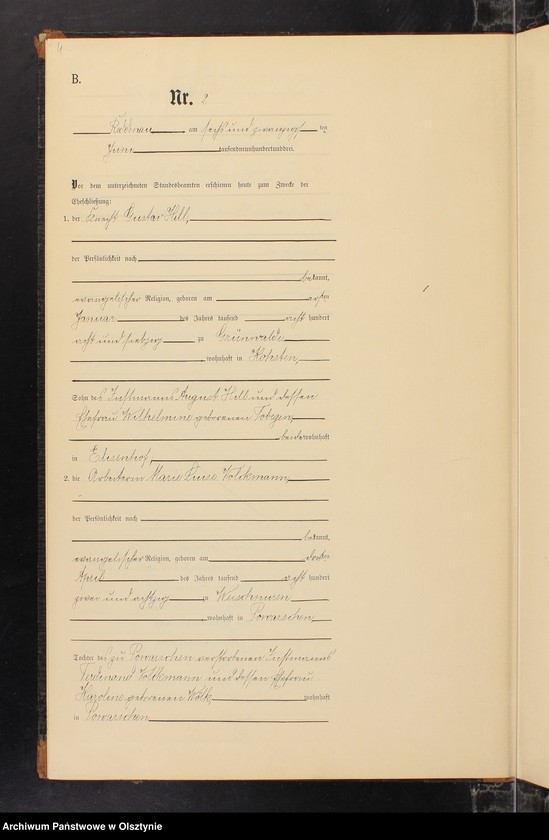 B.
Nr. 2
am sechs und zwanzigs ten
Juni tausendneunhundertunddrei.
Vor dem unterzeichneten Standesbeamten erschienen heute zum Zwecke der
Eheschließung:
1. der Knecht Gustav Hill,
der Persönlichkeit nach
bekannt,
evangelischer Religion, geboren am
Januar des Jahres tausend acht hundert
acht und siebzig zu Grünwalde
, wohnhaft in
Sohn des Instmanns August Hill und dessen
Ehefrau Wilhelmine geborenen
beide wohnhaft
in
2. die Arbeiterin Marie Luise Volckmann,
der Persönlichkeit nach
bekannt,
evangelischer Religion, geboren am
April des Jahres tausend acht hundert
zwei und achtzig zu Wuschnusen
, wohnhaft in Powarschen,
Tochter des zu Powarschen verstorbenen Instmanns
Ferdinand Volckmann und dessen Ehefrau
Karoline geborenen Wölk wohnhaft
in Powarschen
Archiwum Państwowe w Olsztynie